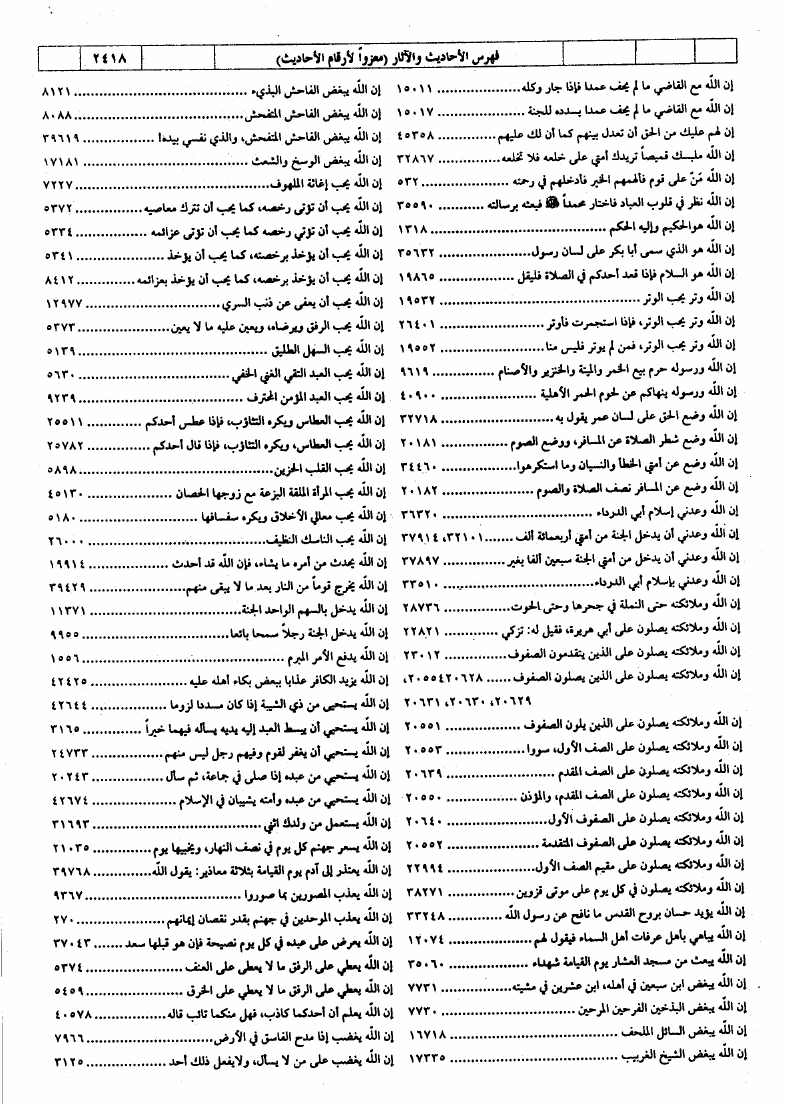 فهرس الأحاديث والآثار (معزواً لأرقام الأحاديث)
٢٤١٨
إن الله مع القاضي ما لم يحف عمدا فإذا جار وكله ١٥٠١١
إن الله مع القاضي ما لم يحف عمدا يسدده للجنة ١٥٠١٧
إن لهم عليك من الحق أن تعدل بينهم كما أن لك عليهم ٤٥٣٥٨
إن الله ملبسك قميصاً تريدك أمتي على خلعه فلا تخلعه ٣٢٨٦٧
إن الله مَنّ على قوم فألهمهم الخير فأدخلهم في رحمته ٥٣٢
إن الله نظر في قلوب العباد فاختار محمداً ﷺ فبعثه برسالته ٣٥٥٩٠
إن الله هو الحكيم وإليه الحكم ١٣١٨
إن الله هو الذي سمى أبا بكر على لسان رسول ٣٥٦٣٢
إن الله هو السلام فإذا قعد أحدكم في الصلاة فليقل ١٩٨٦٥
إن الله وتر يحب الوتر ١٩٥٣٢
إن الله وتر يحب الوتر، فإذا استجمرت فأوتر ٢٦٤٠١
إن الله وتر يحب الوتر، فمن لم يوتر فليس منا ١٩٥٥٢
إن الله ورسوله حرم بيع الخمر والميتة والخنزير والأصنام ٩٦١٩
إن الله ورسوله ينهاكم عن لحوم الحمر الأهلية ٤٠٩٠٠
إن الله وضع الحق على لسان عمر يقول به ٣٢٧١٨
إن الله وضع شطر الصلاة عن المسافر، ووضع الصوم ٢٠١٨١
إن الله وضع عن أمتي الخطأ والنسيان وما استكرهوا ٣٤٤٦٠
إن الله وضع عن المسافر نصف الصلاة والصوم ٢٠١٨٢
إن الله وعدني إسلام أبي الدرداء ٣٦٣٢٠
إن الله وعدني أن يدخل الجنة من أمتي أربعمائة ألف ٣٢١٠١، ٣٧٩١٤
إن الله وعدني أن يدخل من أمتي الجنة سبعين ألفا بغير ٣٧٨٩٧
إن الله وعدني بإسلام أبي الدرداء ٣٣٥١٠
إن الله وملائكته حتى النملة في جحرها وحتى الحوت ٢٨٧٣٦
إن الله وملائكته يصلون على أبي هريرة، فقيل له: تزكي ٢٢٨٢١
إن الله وملائكته يصلون على الذين يتقدمون الصفوف ٢٣٠١٢
إن الله وملائكته يصلون على الذين يصلون الصفوف ٢٠٥٥٤٢٠٦٢٨،
٢٠٦٢٩، ٢٠٦٣٠، ٢٠٦٣١
إن الله وملائكته يصلون على الذين يلون الصفوف ٢٠٥٥١
إن الله وملائكته يصلون على الصف الأول، سووا ٢٠٥٥٣
إن الله وملائكته يصلون على الصف المقدم ٢٠٦٣٩
إن الله وملائكته يصلون على الصف المقدم، والمؤذن ٢٠٥٥٠
إن الله وملائكته يصلون على الصفوف الأول ٢٠٦٤٠
إن الله وملائكته يصلون على الصفوف المتقدمة ٢٠٥٥٢
إن الله وملائكته يصلون على مقيم الصف الأول ٢٢٩٩٤
إن الله وملائكته يصلون في كل يوم على موتى قزوين ٣٨٢٧١
إن الله يؤيد حسان بروح القدس ما نافح عن رسول الله ٣٣٢٤٨
إن الله يباهي بأهل عرفات أهل السماء فيقول لهم ١٢٠٧٤
إن الله يبعث من مسجد العشار يوم القيامة شهداء ٣٥٠٦٠
إن الله يبغض ابن سبعين في أهله، ابن عشرين في مشيته ٧٧٣١
إن الله يبغض البذخين الفرحين المرحين ٧٧٣٠
إن الله يبغض السائل الملحف ١٦٧١٨
إن الله يبغض الشيخ الغربيب ١٧٣٣٥
إن الله يبغض الفاحش البذيء ٨١٢١
إن الله يبغض الفاحش المتفحش ٨٠٨٨
إن الله يبغض الفاحش المتفحش، والذي نفسي بيده! ٣٩٦١٩
إن الله يبغض الوسخ والشعث ١٧١٨١
إن الله يحب إغاثة الملهوف ٧٢٢٧
إن الله يحب أن تؤتى رخصه، كما يحب أن تترك معاصيه ٥٣٧٢
إن الله يحب أن تؤتي رخصه كما يحب أن تؤتى عزائمه ٥٣٣٤
إن الله يحب أن يؤخذ برخصته، كما يحب أن يؤخذ ٥٣٤١
إن الله يحب أن يؤخذ برخصه، كما يحب أن يؤخذ بعزائمه ٨٤١٢
إن الله يحب أن يعفى عن ذنب السري ١٢٩٧٧
إن الله يحب الرفق ويرضاه، ويعين عليه ما لا يعين ٥٣٧٣
إن الله يحب السهل الطليق ٥١٣٩
إن الله يحب العبد التقي الغني الخفي ٥٦٣٠
إن الله يحب العبد المؤمن المحترف ٩٢٣٩
إن الله يحب العطاس ويكره التثاؤب، فإذا عطس أحدكم ٢٥٥١١
إن الله يحب العطاس، ويكره التثاؤب، فإذا قال أحدكم ٢٥٧٨٢
إن الله يحب القلب الحزين ٥٨٩٨
إن الله يحب المرأة الملقة البزعة مع زوجها الحصان ٤٥١٣٠
إن الله يحب معالي الأخلاق ويكره سفسافها ٥١٨٠
إن الله يحب الناسك النظيف ٢٦٠٠٠
إن الله يحدث من أمره ما يشاء، فإن الله قد أحدث ١٩٩١٤
إن الله يخرج قوماً من النار بعد ما لا يبقى منهم ٣٩٤٢٩
إن الله يدخل بالسهم الواحد الجنة ١١٣٧١
إن الله يدخل الجنة رجلاً سمحا بائعا ٩٩٥٥
إن الله يدفع الأمر المبرم ١٥٥٦
إن الله يزيد الكافر عذابا ببعض بكاء أهله عليه ٤٢٤٢٥
إن الله يستحيي من ذي الشيبة إذا كان مسددا لزوما ٤٢٦٤٤
إن الله يستحيي أن يبسط العبد إليه يديه يسأله فيهما خيراً ٣١٦٥
إن الله يستحيي أن يغفر لقوم وفيهم رجل ليس منهم ٢٤٧٣٣
إن الله يستحيي من عبده إذا صلى في جماعة، ثم سأل ٢٠٢٤٣
إن الله يستحيي من عبده وأمته يشيبان في الإسلام ٤٢٦٧٤
إن الله يستعمل من ولدك اثني ٣١٦٩٣
إن الله يسعر جهنم كل يوم في نصف النهار، ويخبيها يوم ٢١٠٣٥
إن الله يعتذر إلى آدم يوم القيامة بثلاثة معاذير: يقول الله ٣٩٧٦٨
إن الله يعذب المصورين بما صوروا ٩٣٦٧
إن الله يعذب الموحدين في جهنم بقدر نقصان إيمانهم ٢٧٠
إن الله يعرض على عبده في كل يوم نصيحة فإن هو قبلها سعد ٣٧٠٤٣
إن الله يعطي على الرفق ما لا يعطي على العنف ٥٣٧٤
إن الله يعطي على الرفق ما لا يعطي على الخرق ٥٤٥٩
إن الله يعلم أن أحدكما كاذب، فهل منكما تائب قاله ٤٠٥٧٨
إن الله يغضب إذا مدح الفاسق في الأرض ٧٩٦٦
إن الله يغضب على من لا يسأل، ولايفعل ذلك أحد ٣١٢٥